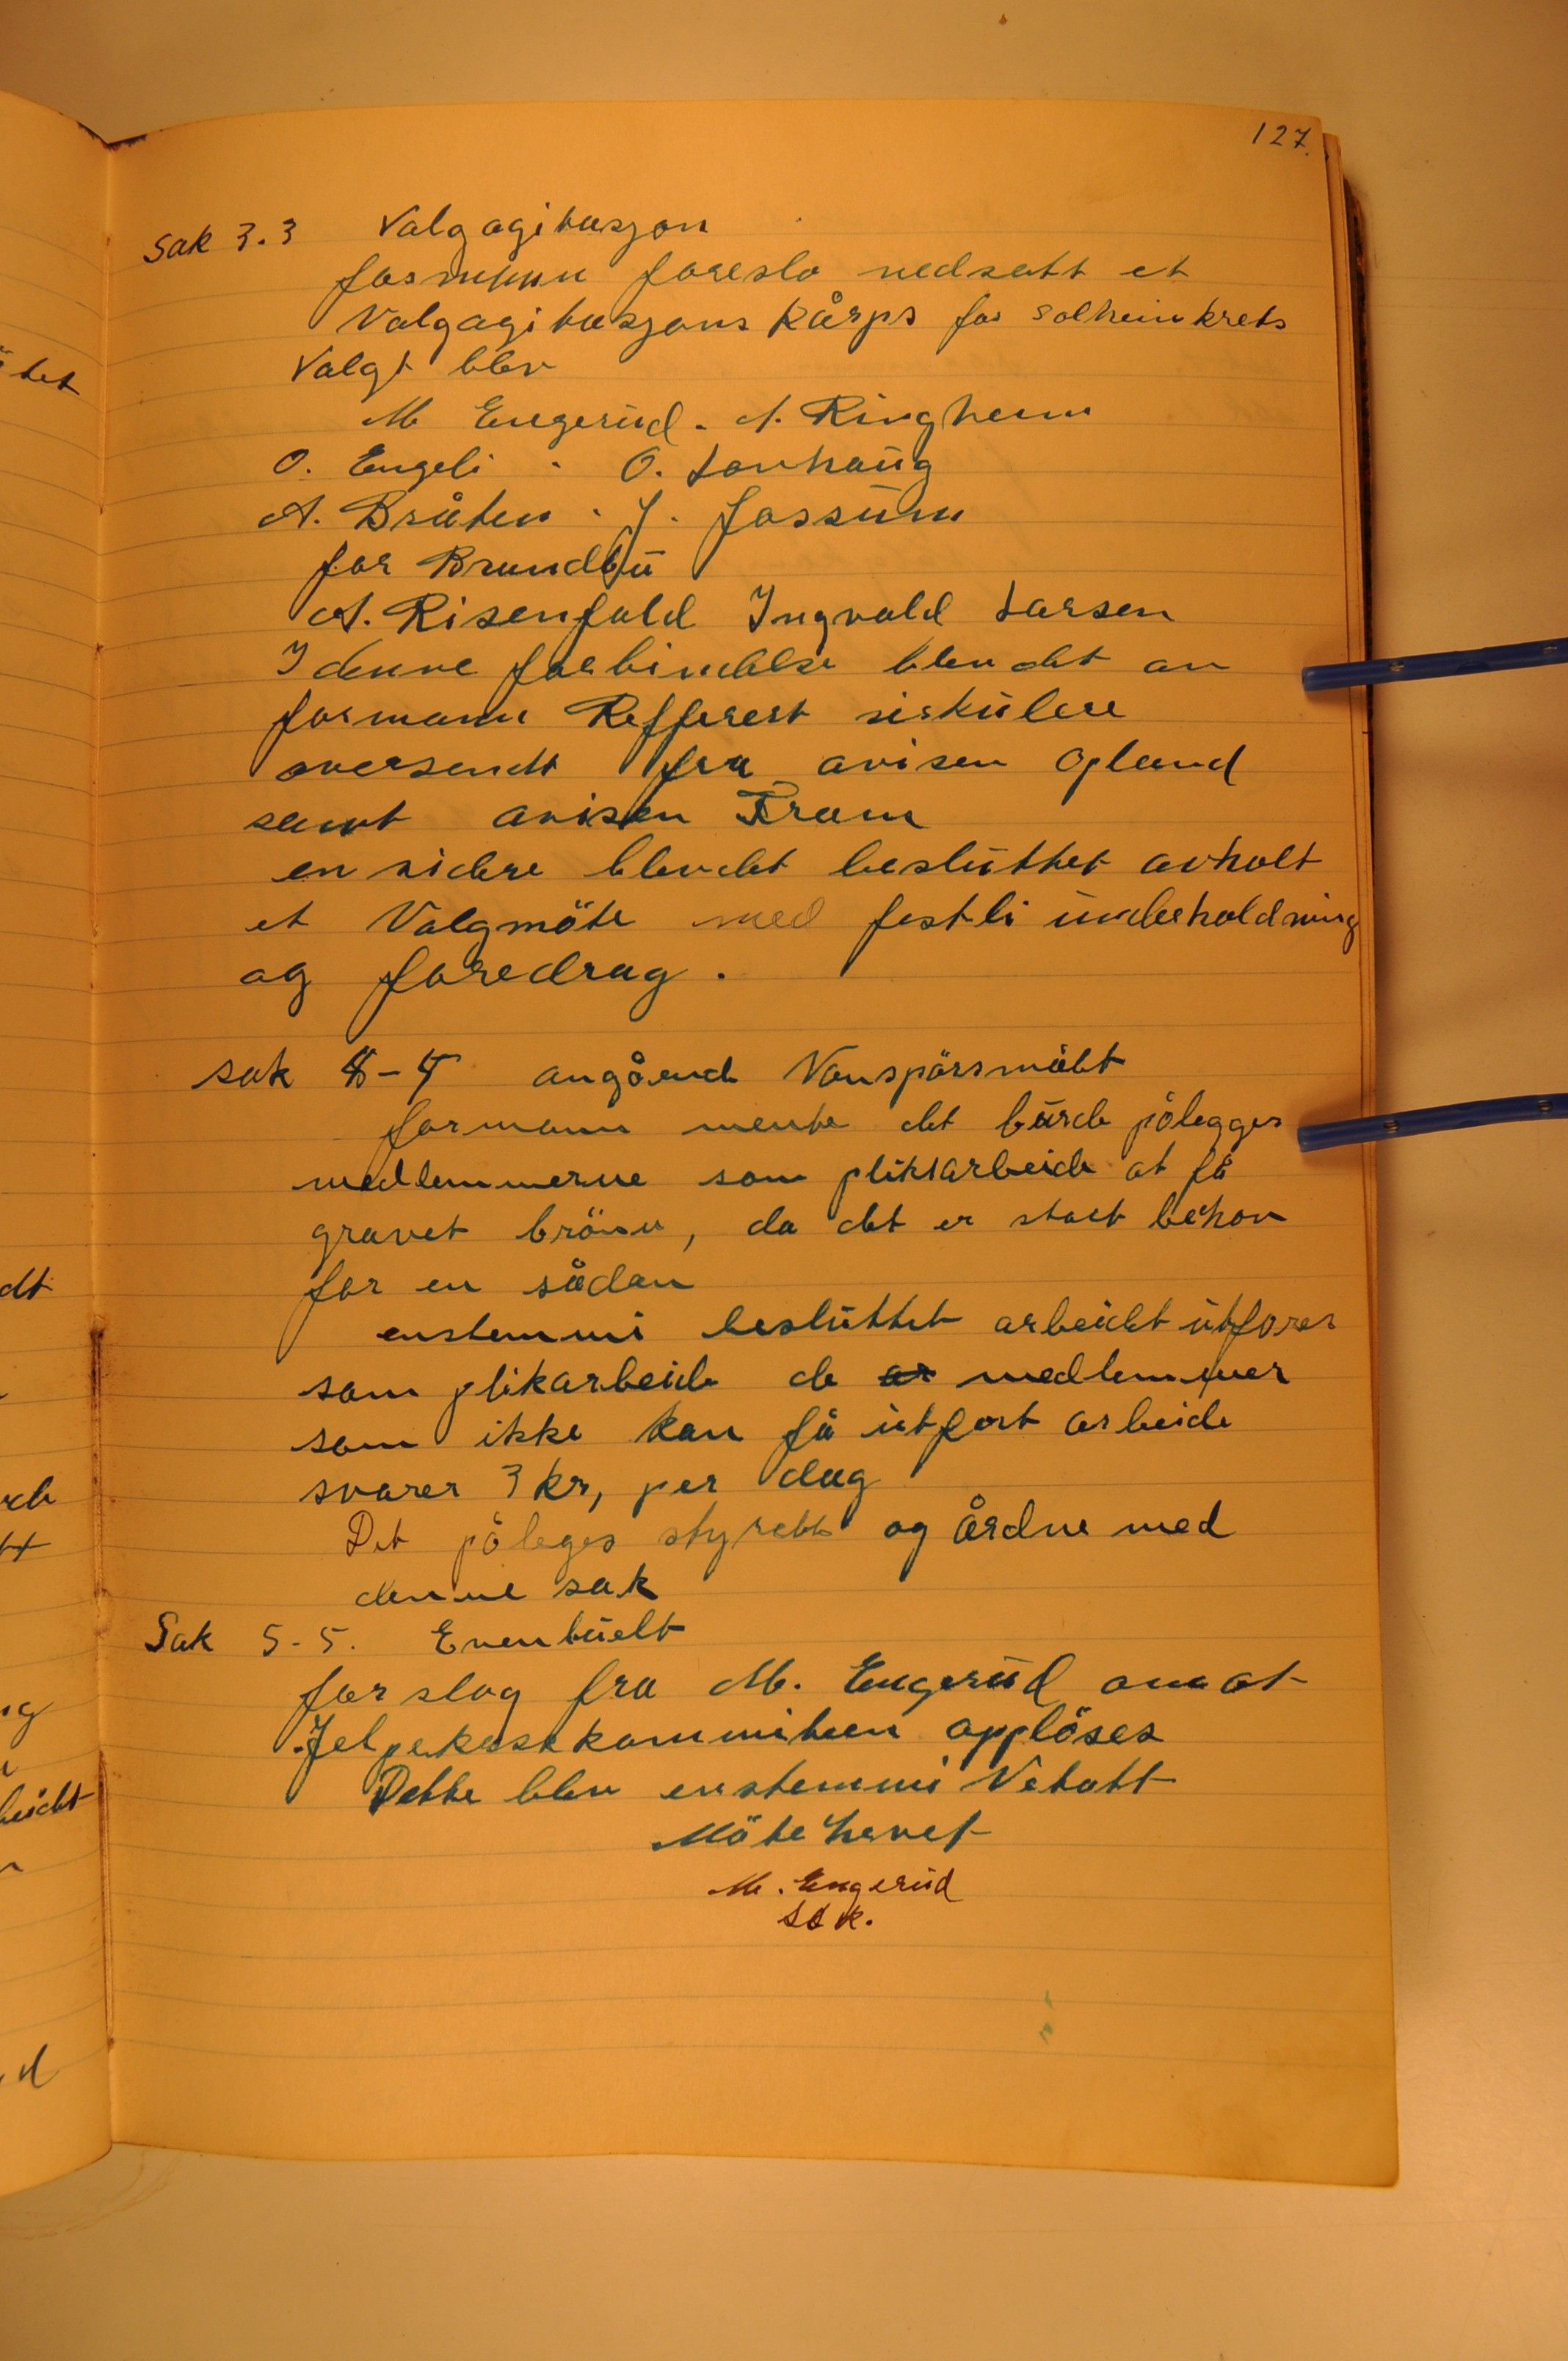 127.
Sak 3.3 Valgagitasjon
formann foreslo nedsatt et
Valgagitasjons Kårps for Solheimkrets
Valgt blev
M Engerud . A. Ringheim
O. Engeli . O. Lovhaug
A. Bråten . J. Jossum
for Brandbu
A. Risenfald Ingvald Larsen
I denne forbindelse blev det av
formann Refferert sirkulere
oversendt fra avisen Opland
samt avisen Fram
en videre blev det besluttet avholt
et Valgmöte med festli underholdning
og foredrag .
sak 4-4 angående Vanspörsmålet
formann mente det burde pålegges
medlemmerne som pliktarbeide at få
gravet brönn, da det er stort behov
for en sådan
enstemmi besluttet arbeidet utfores
som plikarbeide de medlemmer
som ikke kan få utfort arbeide
svarer 3 kr, per dag
Det påleges styrett og årdne med
denne sak
Sak 5-5. Eventuelt
forslag fra M. Engerud om at
Jelpekasskommiteen opplöses
Dette blev enstemmi Vetatt
Möte hevet
M. Engerud
Sek.
tet
dt
beidet